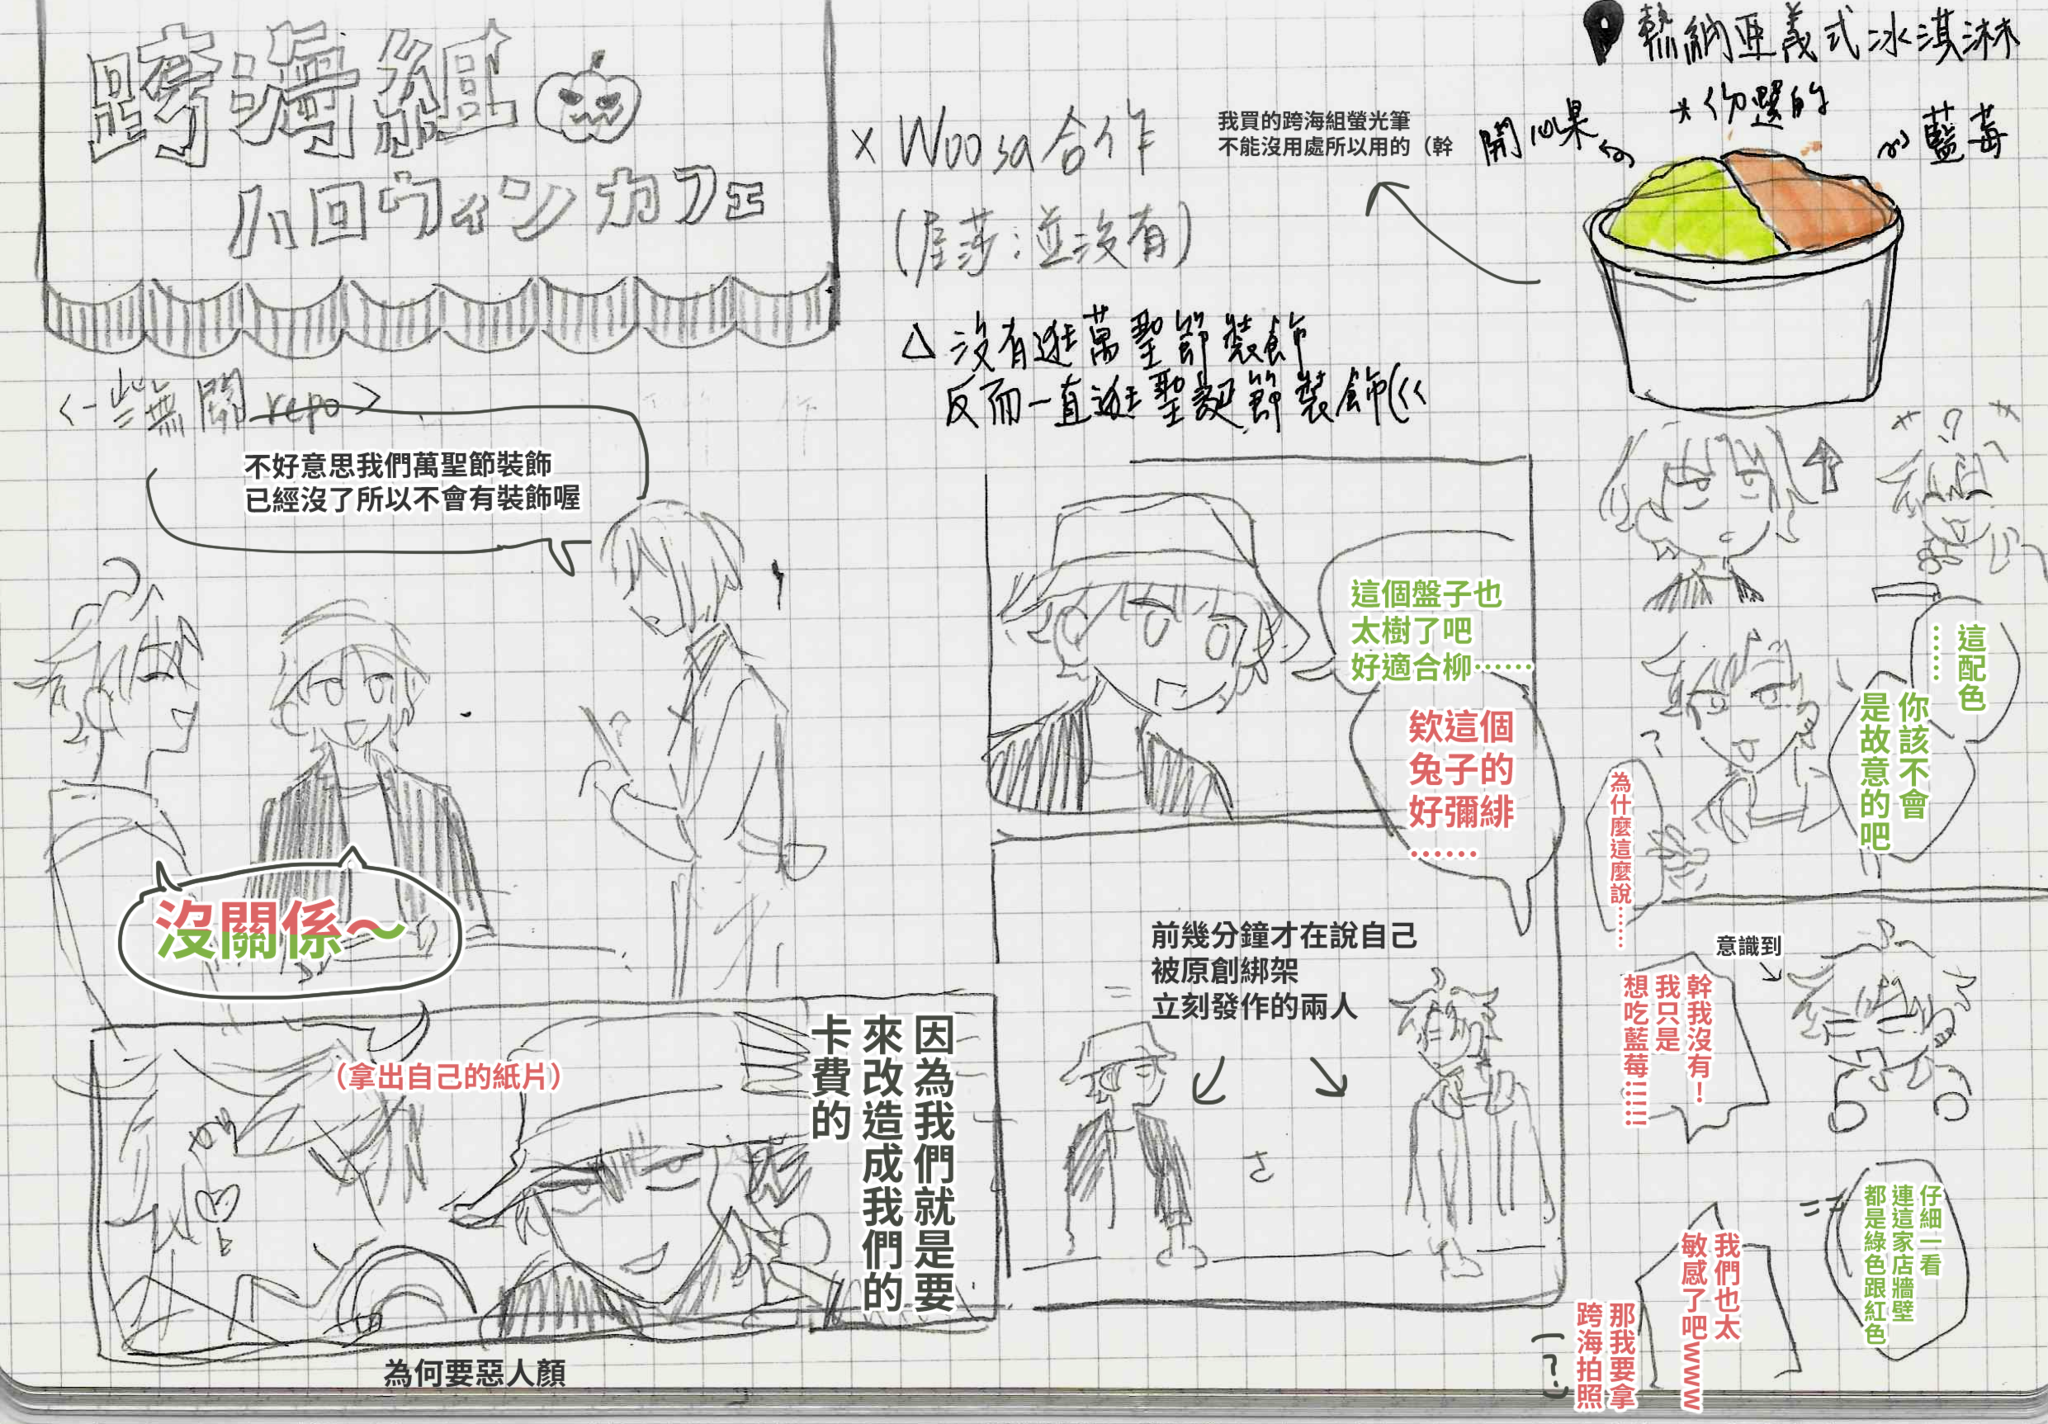 跨海組
ハロウィンカフェ
× Woosa合作
(屋莎:並沒有)
△ 沒有逛萬聖節裝飾
反而一直逛聖誕節裝飾(<<
<一些無關repo>
不好意思我們萬聖節裝飾
已經沒了所以不會有裝飾喔
沒關係～
因為我們就是要
來改造成我們的
卡費的
(拿出自己的紙片)
為何要惡人顏
這個盤子也
太樹了吧
好適合柳……
欸這個
兔子的
好彌緋
……
前幾分鐘才在說自己
被原創綁架
立刻發作的兩人
熱納亞義式冰淇淋
*你選的
開心果
藍莓
我買的跨海組螢光筆
不能沒用處所以用的（幹
這配色
……
你該不會
是故意的吧
為什麼這麼說……
意識到
幹我沒有！
我只是
想吃藍莓!!!!!!
仔細一看
連這家店牆壁
都是綠色跟紅色
我們也太
敏感了吧www
那我要拿
跨海拍照
(?)